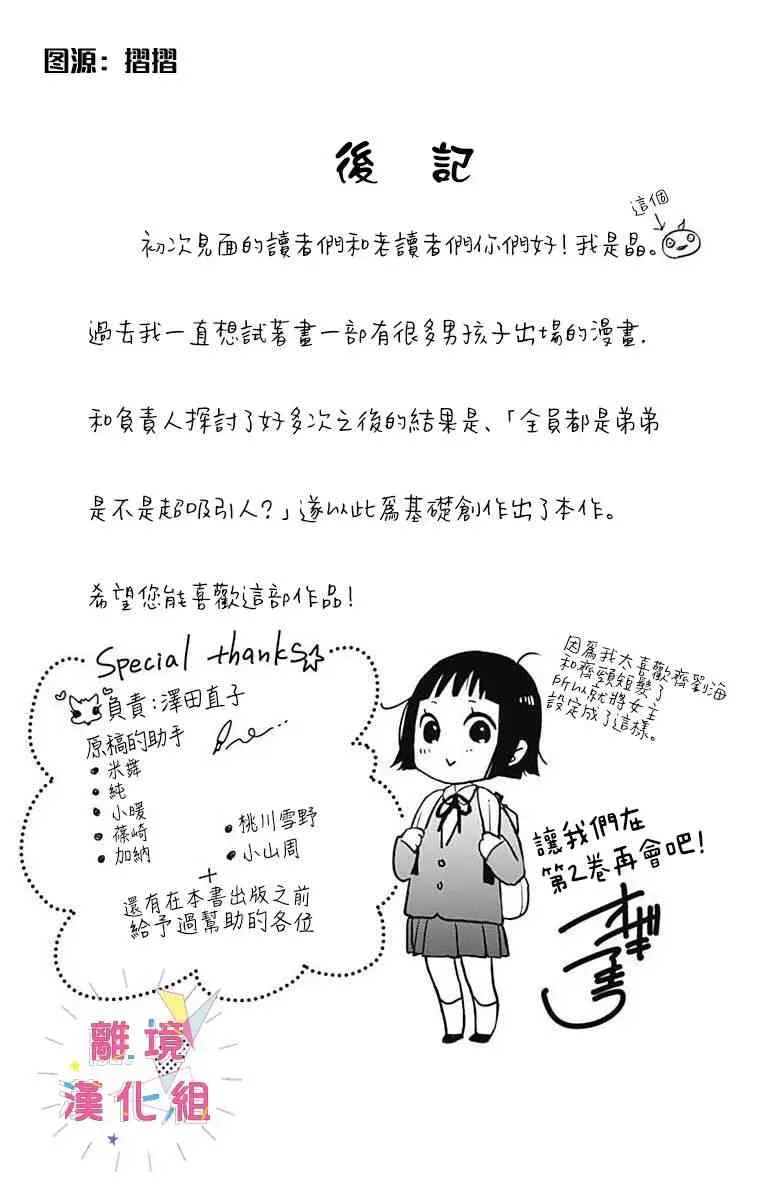 图源：摺摺
後記
這個
初次見面的讀者們和老讀者們你們好！我是晶。
過去我一直想試著畫一部有很多男孩子出場的漫畫.
和負責人探討了好多次之後的結果是、「全員都是弟弟
是不是超吸引人？」遂以此爲基礎創作出了本作。
希望您能喜歡這部作品！
Special thanks
負責：澤田直子
原稿的助手
• 米舞
• 純
• 小暖
• 葆崎
• 加納
• 桃川雪野
• 小山周
+
還有在本書出版之前
給予過幫助的各位
因爲我太喜歡齊劉海
和齊頸短髮了
所以就將女主
設定成了這樣。
讓我們在
第2卷再會吧！
離境
漢化組